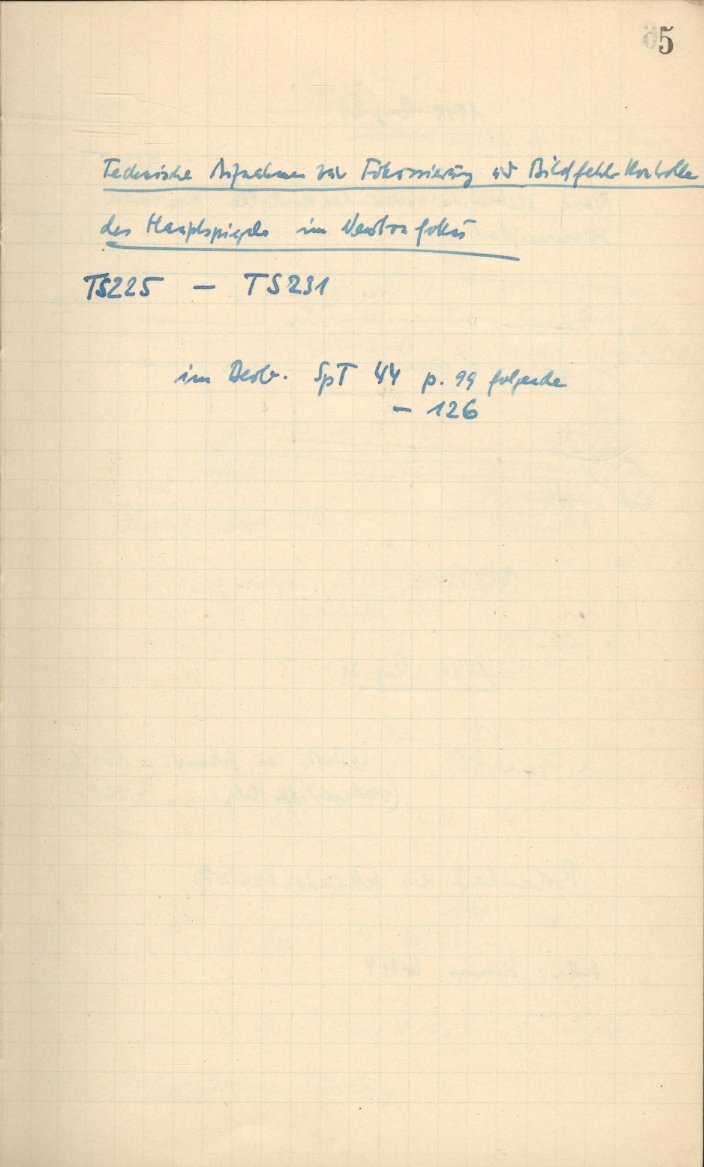 5
Technische Aufnahmen zur Fokussierung und Bildfehler Kontrolle
des Hauptspiegels im Newtonfokus
TS225 – TS231
im Beob. SpT 44 p. 99 folgende
– 126